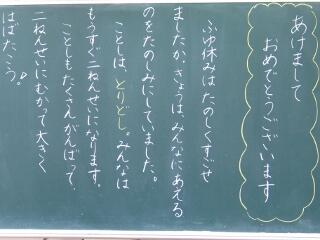 あけまして
おめでとうございます
ふゆ休みはたのしくすごせ
ましたか。きょうは、みんなにあえる
のをたのしみにしていました。
ことしは、とりどし。みんなは
もうすぐ二ねんせいになります。
ことしもたくさんがんばって、
二ねんせいにむかって大きく
はばたこう。